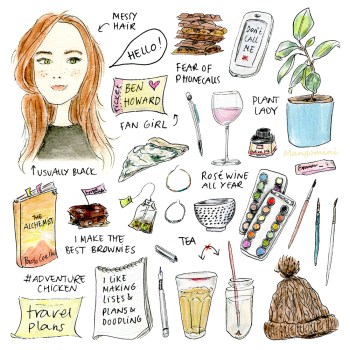 MESSY
HAIR
HELLO!
DON'T
CALL
ME
FEAR OF
PHONECALLS
TICKET
BEN
HOWARD
FAN GIRL
PLANT
LADY
USUALLY BLACK
ROSÉ WINE
ALL YEAR
THE
ALCHEMIST
I MAKE THE
BEST BROWNIES
TEA
#ADVENTURE
CHICKEN
travel
plans
I LIKE
MAKING
LISTS &
PLANS &
DOODLING